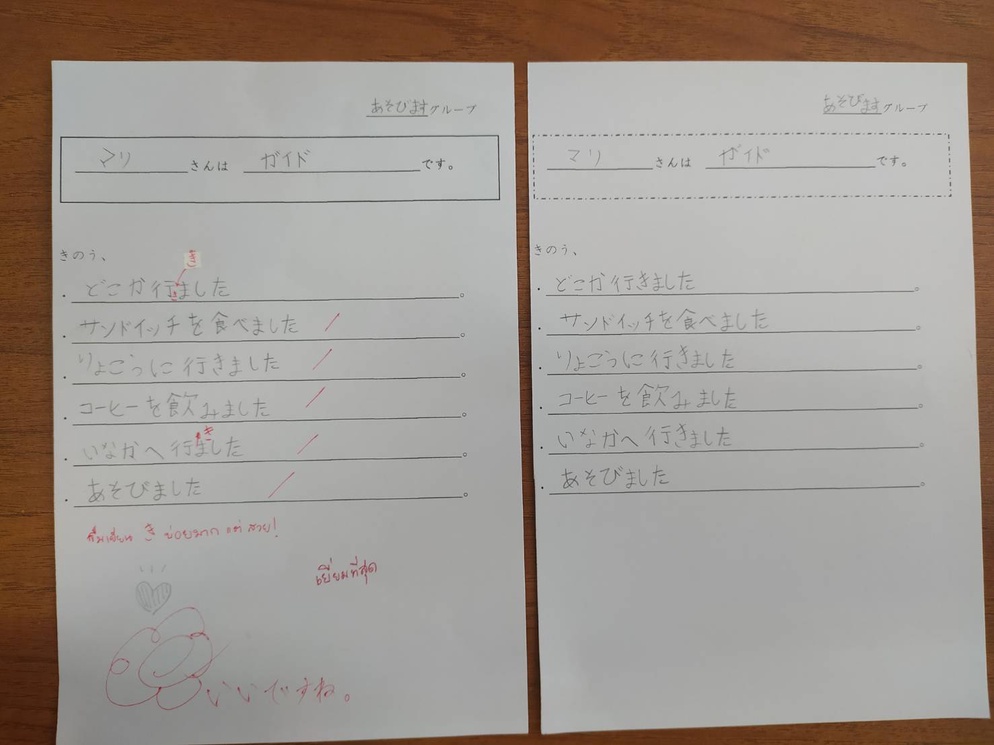 あそびますグループ
マリ さんは ガイド です。
きのう、
き
・どこか行ました。
き
・サンドイッチを食べました。
・りょこうに行きました。
・コーヒーを飲みました。
き
・いなかへ行ました。
・あそびました。
ลืมเขียน き บ่อยมาก แต่ สวย!
เยี่ยมที่สุด
いいですね。
あそびますグループ
マリ さんは ガイド です。
きのう、
・どこか行きました。
・サンドイッチを食べました。
・りょこうに行きました。
・コーヒーを飲みました。
・いなかへ行きました。
・あそびました。